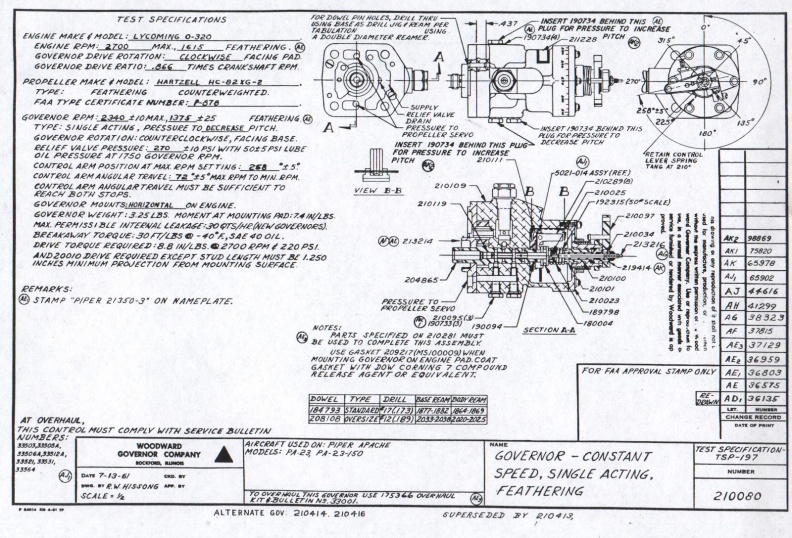 TEST SPECIFICATIONS
ENGINE MAKE & MODEL: LYCOMING O-320
ENGINE RPM: 2700 MAX., 1615 FEATHERING.
GOVERNOR DRIVE ROTATION: CLOCKWISE FACING PAD.
GOVERNOR DRIVE RATIO: .866 TIMES CRANKSHAFT RPM.
PROPELLER MAKE & MODEL: HARTZELL HC-82XG-2
TYPE: FEATHERING COUNTERWEIGHTED.
FAA TYPE CERTIFICATE NUMBER: P-878
GOVERNOR RPM: 2340 ±10 MAX, 1375 ±25 FEATHERING
TYPE: SINGLE ACTING, PRESSURE TO DECREASE PITCH.
GOVERNOR ROTATION: COUNTERCLOCKWISE, FACING BASE.
RELIEF VALVE PRESSURE: 270 ±10 PSI WITH 50±5 PSI LUBE
OIL PRESSURE AT 1750 GOVERNOR RPM.
CONTROL ARM POSITION AT MAX. RPM SETTING: 258 ±5°
CONTROL ARM ANGULAR TRAVEL: 72 ±5° MAX RPM TO MIN. RPM.
CONTROL ARM ANGULAR TRAVEL MUST BE SUFFICIENT TO
REACH BOTH STOPS.
GOVERNOR MOUNTS: HORIZONTAL ON ENGINE.
GOVERNOR WEIGHT: 3.25 LBS. MOMENT AT MOUNTING PAD: 7.4 IN/LBS.
MAX. PERMISSIBLE INTERNAL LEAKAGE: 30 QTS/HR (NEW GOVERNORS).
BREAKAWAY TORQUE: 30 FT/LBS @ -40°F, SAE 40 OIL.
DRIVE TORQUE REQUIRED: 8.8 IN/LBS. @ 2700 RPM & 220 PSI.
AND20010 DRIVE REQUIRED EXCEPT STUD LENGTH MUST BE 1.250
INCHES MINIMUM PROJECTION FROM MOUNTING SURFACE.
REMARKS:
STAMP "PIPER 21350-3" ON NAMEPLATE.
AT OVERHAUL,
THIS CONTROL MUST COMPLY WITH SERVICE BULLETIN
NUMBERS:
33503, 33505A,
33506A, 33512A,
33521, 33531,
33564
FOR DOWEL PIN HOLES, DRILL THRU
USING BASE AS DRILL JIG & REAM PER
TABULATION USING
A DOUBLE DIAMETER REAMER.
.437
INSERT 190734 BEHIND THIS
PLUG FOR PRESSURE TO INCREASE
PITCH
190734(4)
211228
A
A
SUPPLY
RELIEF VALVE
DRAIN
PRESSURE TO
PROPELLER SERVO
INSERT 190734 BEHIND THIS
PLUG FOR PRESSURE TO
DECREASE PITCH
INSERT 190734 BEHIND THIS PLUG
FOR PRESSURE TO INCREASE
PITCH
0°
45°
90°
135°
180°
225°
258°±5°
270°
315°
RETAIN CONTROL
LEVER SPRING
TANG AT 210°
VIEW B-B
210111
5021-014 ASSY (REF)
210289(8)
210025
192315 (50# SCALE)
210097
210034
213216
219414
210100
210101
210023
189798
180004
210109
210119
213214
204865
PRESSURE TO
PROPELLER SERVO
210095(3)
190733(3)
190094
B
B
SECTION A-A
NOTES:
PARTS SPECIFIED ON 210281 MUST
BE USED TO COMPLETE THIS ASSEMBLY.
USE GASKET 209217 (MS100009) WHEN
MOUNTING GOVERNOR ON ENGINE PAD. COAT
GASKET WITH DOW CORNING 7 COMPOUND
RELEASE AGENT OR EQUIVALENT.
DOWEL TYPE DRILL BASE REAM BODY REAM
184793 STANDARD #17(.173) .1877-.1882 .1864-.1869
208108 OVERSIZE #12(.189) .2033-.2038 .2020-.2025
FOR FAA APPROVAL STAMP ONLY
AK2 98869
AK1 75820
AK 65978
AJ1 65902
AJ 44616
AH 41299
AG 38323
AF 37815
AE3 37129
AE2 36959
AE1 36803
AE 36575
RE-DRAWN AD1 36135
LET. NUMBER
CHANGE RECORD
DATE OF PRINT
WOODWARD
GOVERNOR COMPANY
ROCKFORD, ILLINOIS
DATE 7-13-61 CKD. BY
DWG. BY R.W. HISSONG APP. BY
SCALE = ½
AIRCRAFT USED ON: PIPER APACHE
MODELS: PA-23, PA-23-150
TO OVERHAUL THIS GOVERNOR USE 175366 OVERHAUL
KIT & BULLETIN NO. 33001.
NAME
GOVERNOR - CONSTANT
SPEED, SINGLE ACTING,
FEATHERING
TEST SPECIFICATION-
TSP-197
NUMBER
210080
ALTERNATE GOV: 210414, 210416
SUPERSEDED BY 210413,